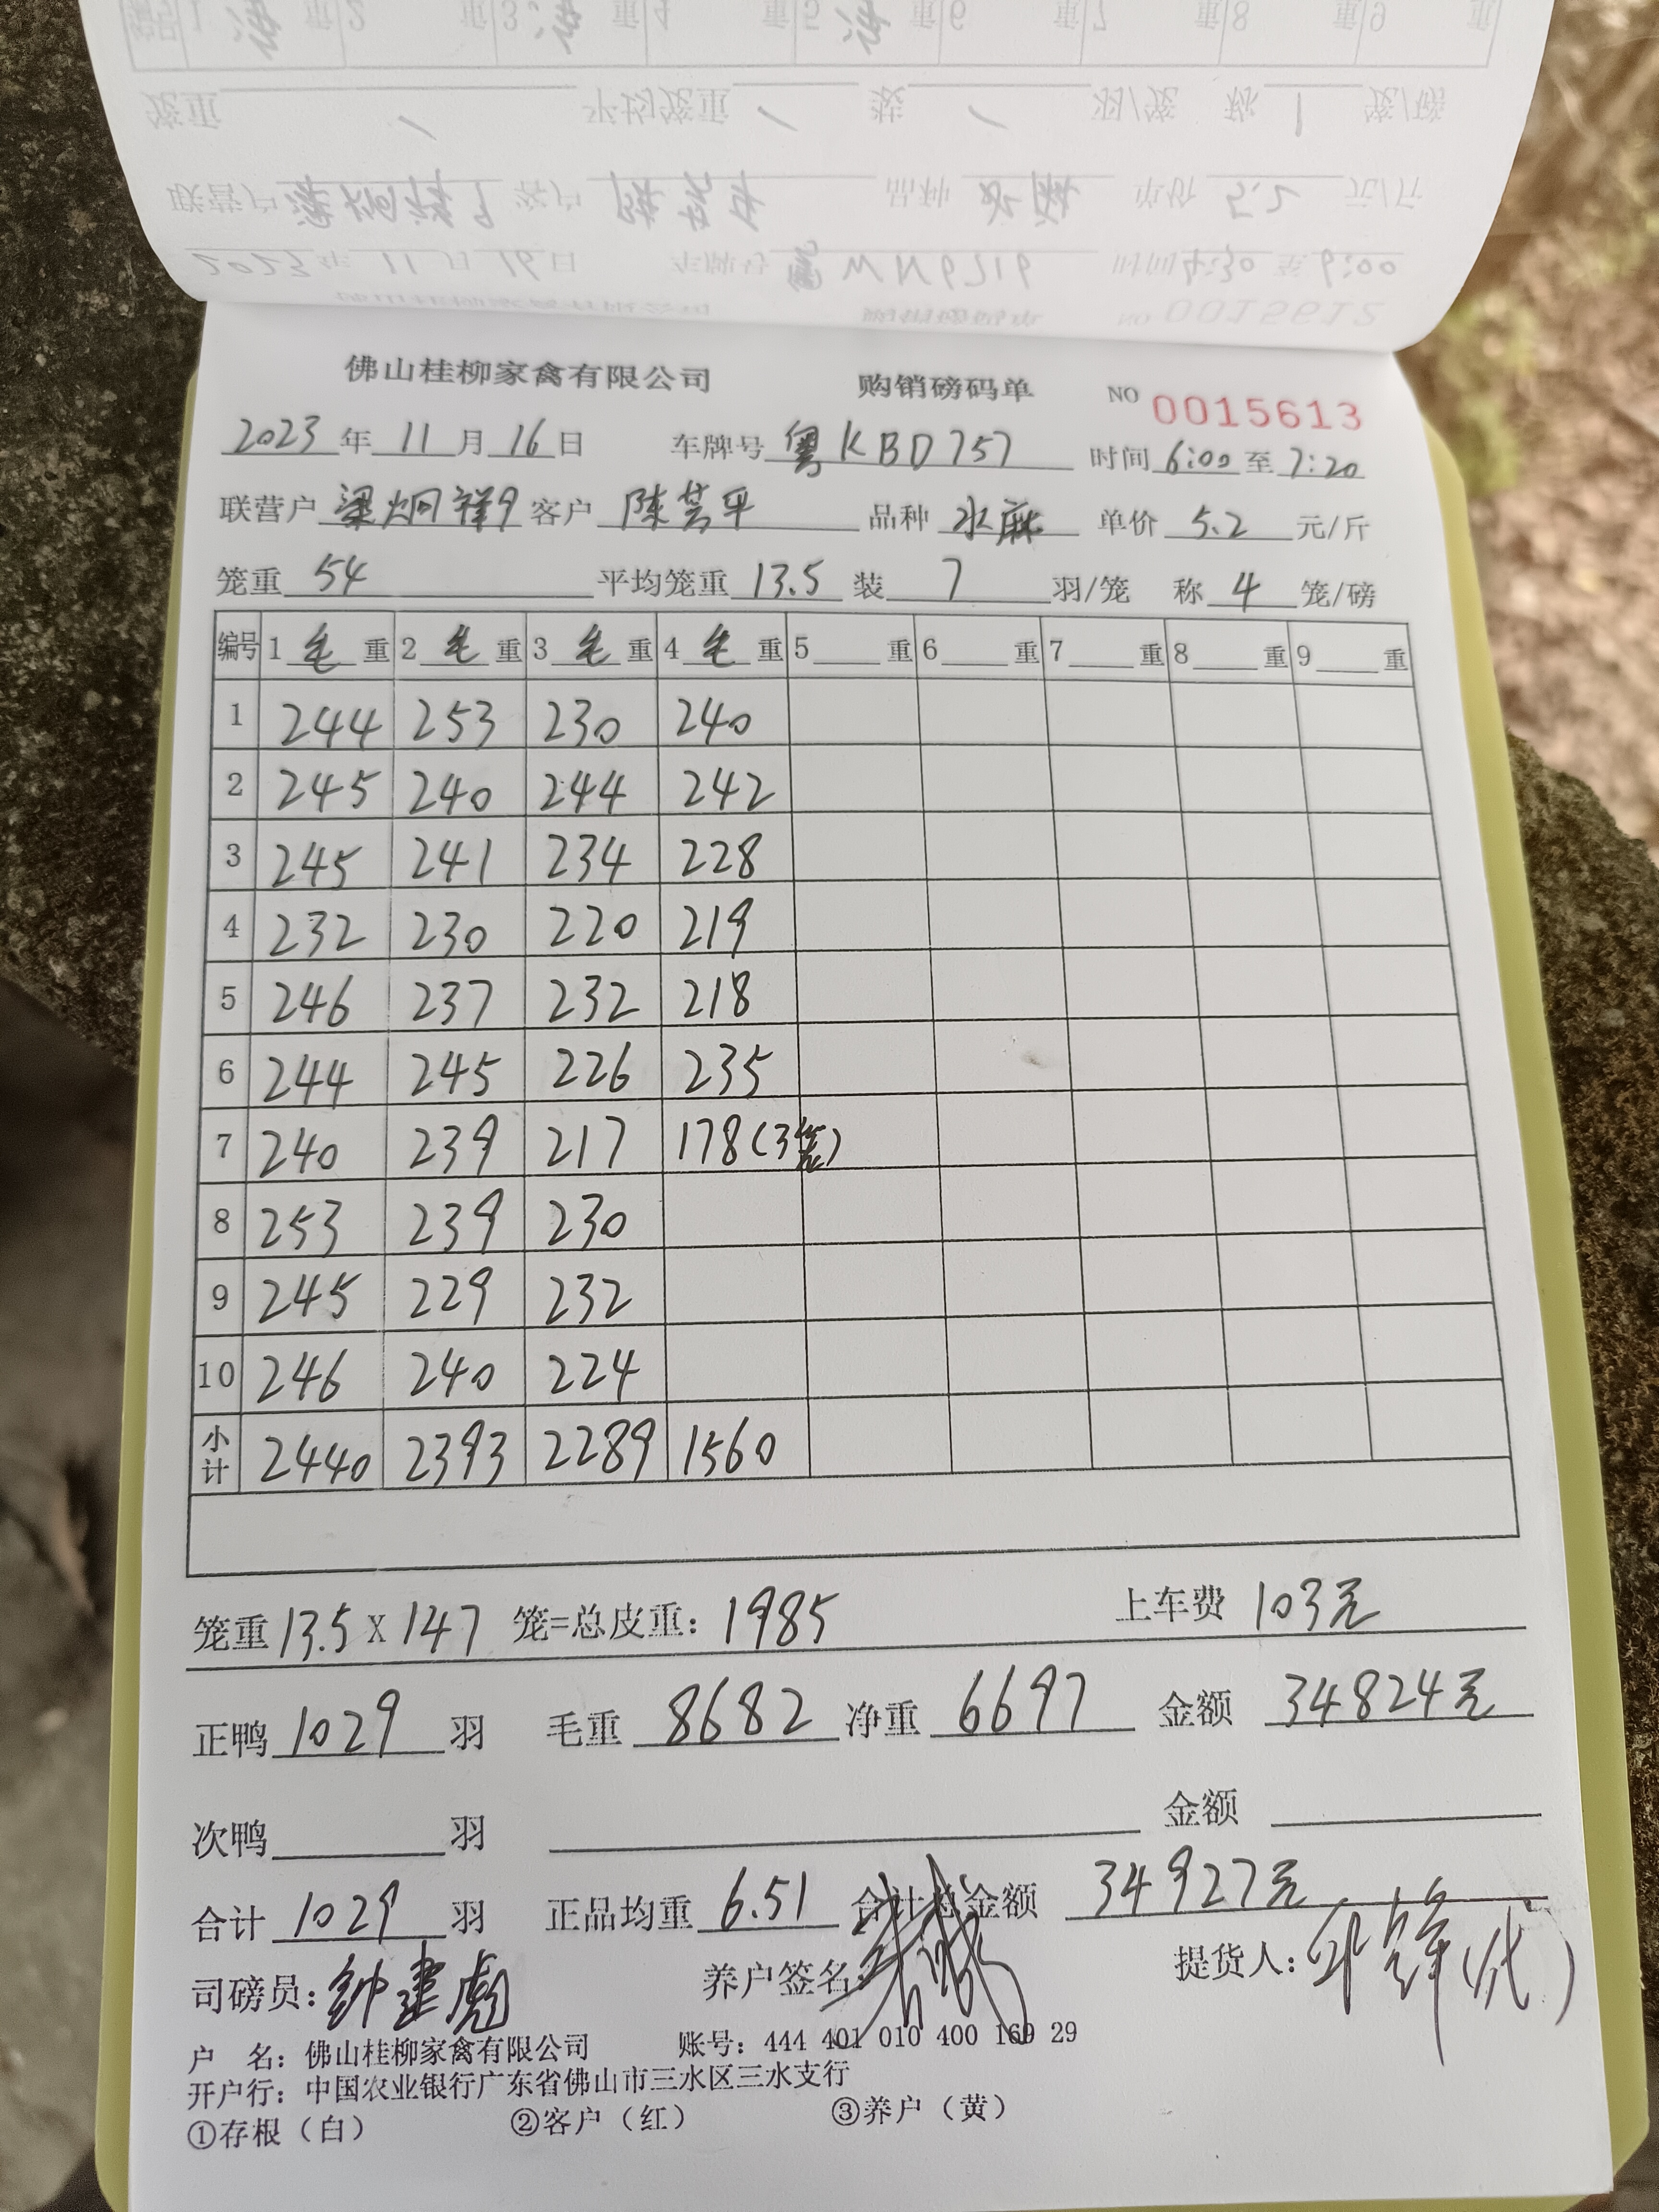 佛山桂柳家禽有限公司 购销磅码单 NO 0015613
2023年11月16日 车牌号 粤KBD757 时间 6:00至7:20
联营户 梁炯祥9 客户 陈芸平 品种 水麻 单价 5.2 元/斤
笼重 54 平均笼重 13.5 装 7 羽/笼 称 4 笼/磅
编号 1 毛 重 2 毛 重 3 毛 重 4 毛 重 5 重 6 重 7 重 8 重 9 重
1 244 253 230 240
2 245 240 244 242
3 245 241 234 228
4 232 230 220 219
5 246 237 232 218
6 244 245 226 235
7 240 239 217 178(3笼)
8 253 239 230
9 245 229 232
10 246 240 224
小计 2440 2393 2289 1560
笼重 13.5 X 147 笼=总皮重: 1985 上车费 103元
正鸭 1029 羽 毛重 8682 净重 6697 金额 34824元
次鸭 羽 金额
合计 1029 羽 正品均重 6.51 合计总金额 34927元
司磅员: 钟建彪 养户签名: 提货人:
户 名: 佛山桂柳家禽有限公司 账号: 444 401 010 400 169 29
开户行: 中国农业银行广东省佛山市三水区三水支行
①存根（白） ②客户（红） ③养户（黄）